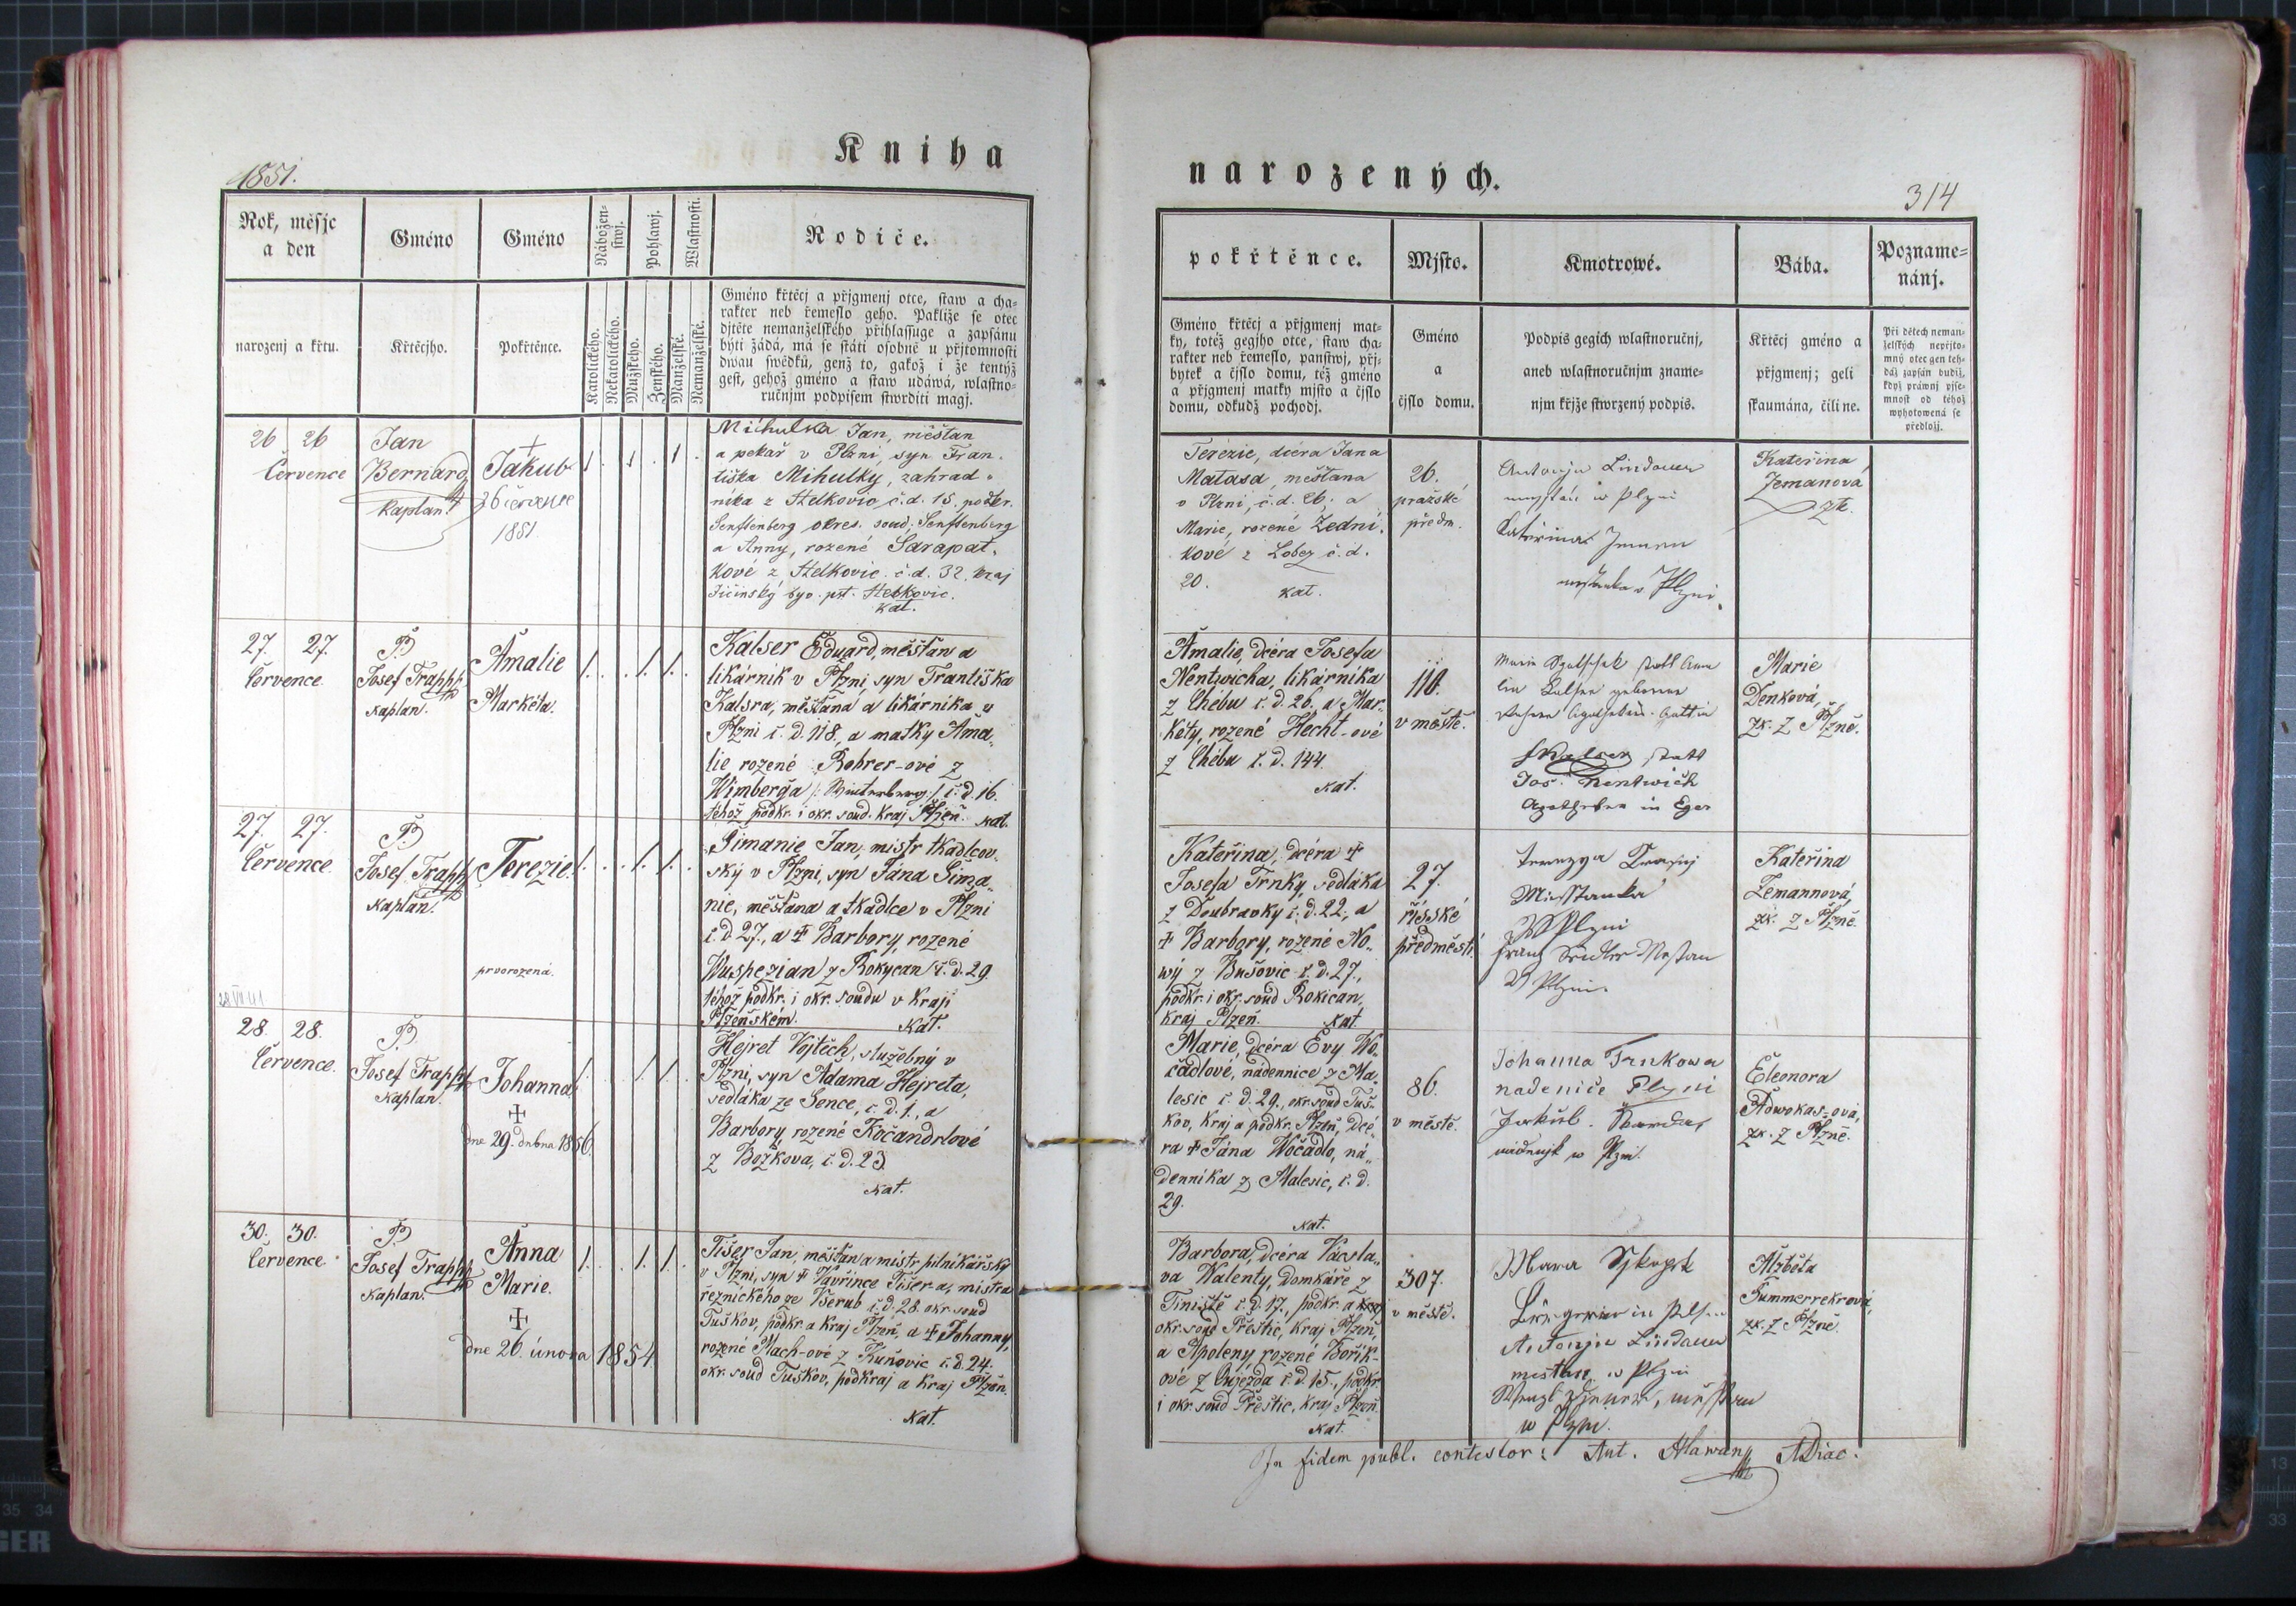 Kniha
1851.
Rok, měsjc
a den
Gméno
Gméno
Nábožen=
stwj.
Pohlawj.
Wlastnosti.
Rodiče.
narozenj a křtu.
Křtěcjho.
Pokřtěnce.
Katolického.
Nekatolického.
Mužského.
Ženského.
Manželské.
Nemanželské.
Gméno křtěcj a přjgmenj otce, staw a cha=
rakter neb řemeslo geho. Pakliže se otec
djtěte nemanželského přihlassuge a zapsánu
býti žádá, má se státi osobně u přjtomnosti
dwau swědků, genž to, gakož i že tentýž
gest, gehož gméno a staw udáwá, wlastno=
ručnjm podpisem stwrditi magj.
26 26
Července
Jan
Bernard
kaplan
+
Jakub
26 července
1851.
1 . 1 . 1 .
Mihulka Jan, měštan
a pekař v Plzni, syn Fran-
tiška Mihulky, zahrad-
nika z Stelkovic, č.d. 15. podkr.
Senftenberg okres. soud. Senftenberg
a Anny, rozené Sarapat-
kové z Stelkovic. č.d. 32. kraj
Jičinský byv. pst. Stebkovic.
kat.
27. 27.
Července.
P.
Josef Trapp
kaplan.
Amalie
Markéta.
1. . . 1. 1. .
Kalser Eduard, měšťan a
likárnik v Plzni, syn Františka
Kalsra, měšťana a likárnika v
Plzni č. d. 118., a matky Ama-
lie rozené Rohrer-ové z
Wimberga /: Winterberg :/ č. d. 16.
téhož podkr. i okr. soud. kraj Plzeň. kat.
27. 27.
Července.
P.
Josef Trapp
kaplan.
Terezie.
prvorozená.
1. . . 1. 1. .
Simanie Jan, mistr tkadlcov-
ský v Plzni, syn Jana Sima-
nie, měšťana a tkadlce v Plzni
č. d. 27., a † Barbory, rozené
Wuspezian z Rokycan č. d. 29.
téhož podkr. i okr. soudu v kraji
Plzeňském. Kat.
28. 28.
Července.
P.
Josef Trapp
kaplan.
Johanna.
+
dne 29. dubna 1856.
1. . . 1. 1. .
Hejret Vojtěch, služebný v
Plzni, syn Adama Hejreta,
sedláka ze Sence, č. d. 1., a
Barbory, rozené Kočandrlové
z Božkova, č. d. 23.
kat.
30. 30.
Července.
P.
Josef Trapp
kaplan.
Anna
Marie.
+
dne 26. února 1854
1. . . 1. 1. .
Tišer Jan, měšťan a mistr pilnikářský
v Plzni, syn † Vavřince Tišer-a, mistra
řeznického ze Všerub č. d. 28. okr. soud
Tuškov, podkr. a kraj Plzeň, a † Johanny,
rozené Mach-ové z Kuňovic č. d. 24.
okr. soud Tuškov, podkraj a kraj Plzeň.
kat.
narozených.
314
pokřtěnce.
Mjsto.
Kmotrowé.
Bába.
Pozname=
nánj.
Gméno křtěcj a přjgmenj mat=
ky, totéž gegjho otce, staw cha=
rakter neb řemeslo, panstwj, přj=
bytek a čjslo domu, též gméno
a přjgmenj matky mjsto a čjslo
domu, odkudž pochodj.
Gméno
a
čjslo domu.
Podpis gegich wlastnoručnj,
aneb wlastnoručnjm zname=
njm křjže stwrzený podpis.
Křtěcj gméno a
přjgmenj; geli
skaumána, čili ne.
Při dětech neman=
želských nepřjto=
mný otec gen teh=
dáž zapsán budiž,
když práwnj pjse=
mnost od téhož
wyhotowená se
předložj.
Terézie, dcéra Jana
Matasa, měšťana
v Plzni, č.d. 26, a
Marie, rozené Zedni-
kové z Lobez č.d.
20.
kat.
26.
pražské
předm.
Antonju Lindauer
w Plzni
Kateřina
v Plzni.
Kateřina
Zemanová
zk.
Amalie, dcéra Josefa
Nentwicha, likárnika
z Chébu č. d. 26., a Mar-
kéty, rozené Hecht-ové
z Chébu č. d. 144.
kat.
118.
v městě.
statt Ama
lie Kalser geborene
Rohrer Apothekers Gattin
Kalser statt
Jos. Nentwich
Apotheker in Eger
Marie
Denková,
zk. z Plzně.
Kateřina, dcéra †
Josefa Trnky, sedláka
z Doubravky č. d. 22., a
† Barbory, rozené No-
wý z Bušovic č. d. 27.,
podkr. i okr. soud Rokican,
kraj Plzeň. Kat.
27.
říšské
předměstí.
Miesstanka
W Plzni
Franz
W Plzni.
Kateřina
Zemannová,
zk. z Plzně.
Marie, dcéra Evy Wo-
čadlové, nádennice z Ma-
lesic č. d. 29., okr. soud Tuš-
kov, kraj a podkr. Plzeň, dcé-
ra † Jána Wočadlo, ná-
denníka z Malesic, č. d.
29.
kat.
86.
v městě.
Johanna Trnkowa
nadenice Plzni
Jakub
w Plzni.
Eleonora
Nowokas-ová,
zk. z Plzně.
Barbora, dcéra Václa-
va Walenty, domkáře z
Tiniště č. d. 17., podkr. a kraj
okr. soud Přeštic, kraj Plzeň,
a Apoleny, rozené Bořík-
ové z Oujezda č. d. 15., podkr.
i okr. soud Přeštic, kraj Plzeň.
kat.
307.
v městě.
Bürgerin in Pilsen
Antonju Lindauer
mestan w Plzni
w Plzni.
Alžběta
Summerrekrová,
zk. z Plzně.
In fidem publ. contestor: Ant. Hlawan ADiac.